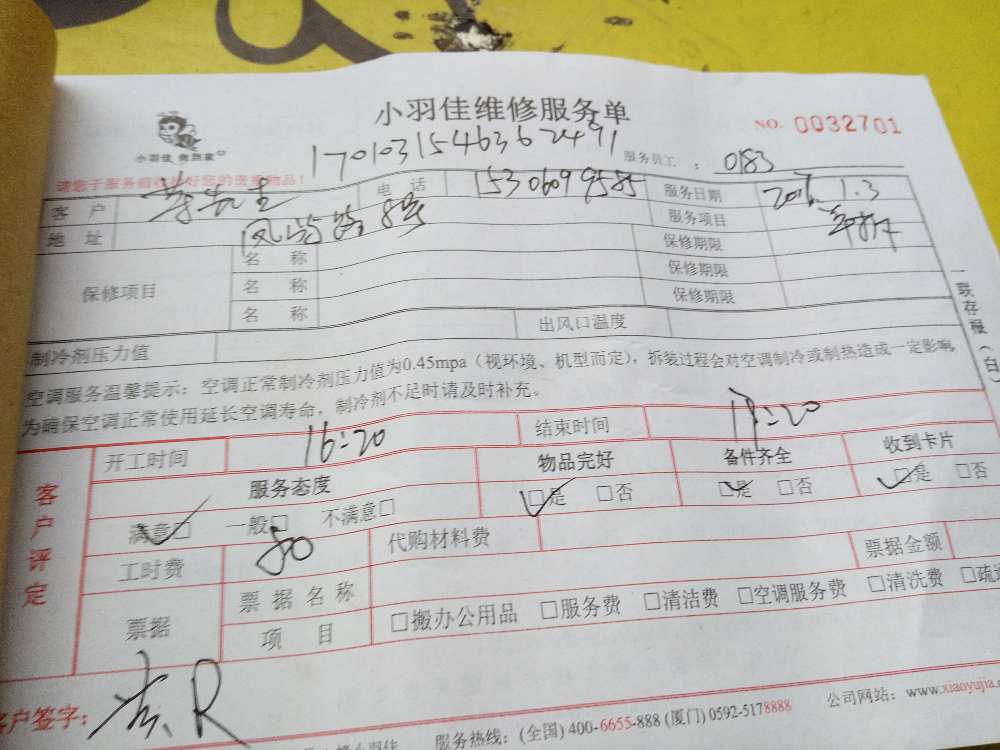 小羽佳维修服务单
NO. 0032701
小羽佳
1701031546362491
服务员工：0183
请您于服务前
好您的贵重物品！
客 户 电 话 服务日期
地 址 8号 服务项目
保修项目 名 称 保修期限
名 称 保修期限
名 称 保修期限
制冷剂压力值 出风口温度
空调服务温馨提示：空调正常制冷剂压力值为0.45mpa（视环境、机型而定），拆装过程会对空调制冷或制热造成一定影响，
为确保空调正常使用延长空调寿命，制冷剂不足时请及时补充。
一联存根（白）
客户评定
开工时间 16:20 结束时间 17:20
服务态度 物品完好 备件齐全 收到卡片
满意□ 一般□ 不满意□ □是 □否 □是 □否 □是 □否
工时费 80 代购材料费 票据金额
票据 票据名称
项 目 □搬办公用品 □服务费 □清洁费 □空调服务费 □清洗费 □疏通
客户签字：
服务热线：(全国) 400-6655-888 (厦门) 0592-5178888
公司网站：www.xiaoyujia.c